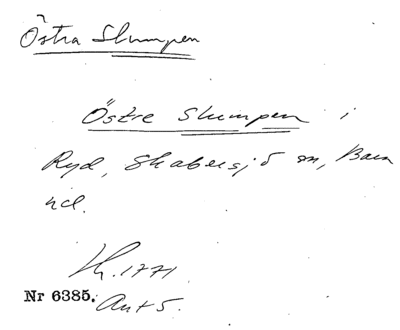 Östra Slumpen
Östre Slumpen i
Ryd, Skabersjö sn, Bara
hd.
Lk. 1771
Nr 6385. Ant 5.